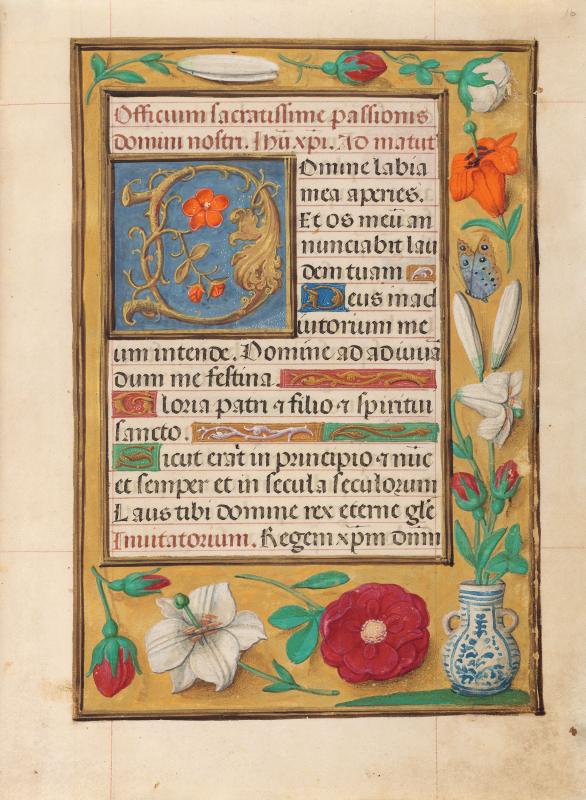 Officium sacratissime passionis
domini nostri. Ihū xpi. Ad matut
Domine labia
mea aperies.
Et os meū an
nunciabit lau
dem tuam
Deus in ad
iutorium me
um intende. Domine ad adiuuā
dum me festina.
Gloria patri ⁊ filio ⁊ spiritui
sancto.
Sicut erāt in principio ⁊ nūc
et semper et in secula seculorum
Laus tibi domine rex eterne glē
Inuitatorium. Regem xp̄m dnm